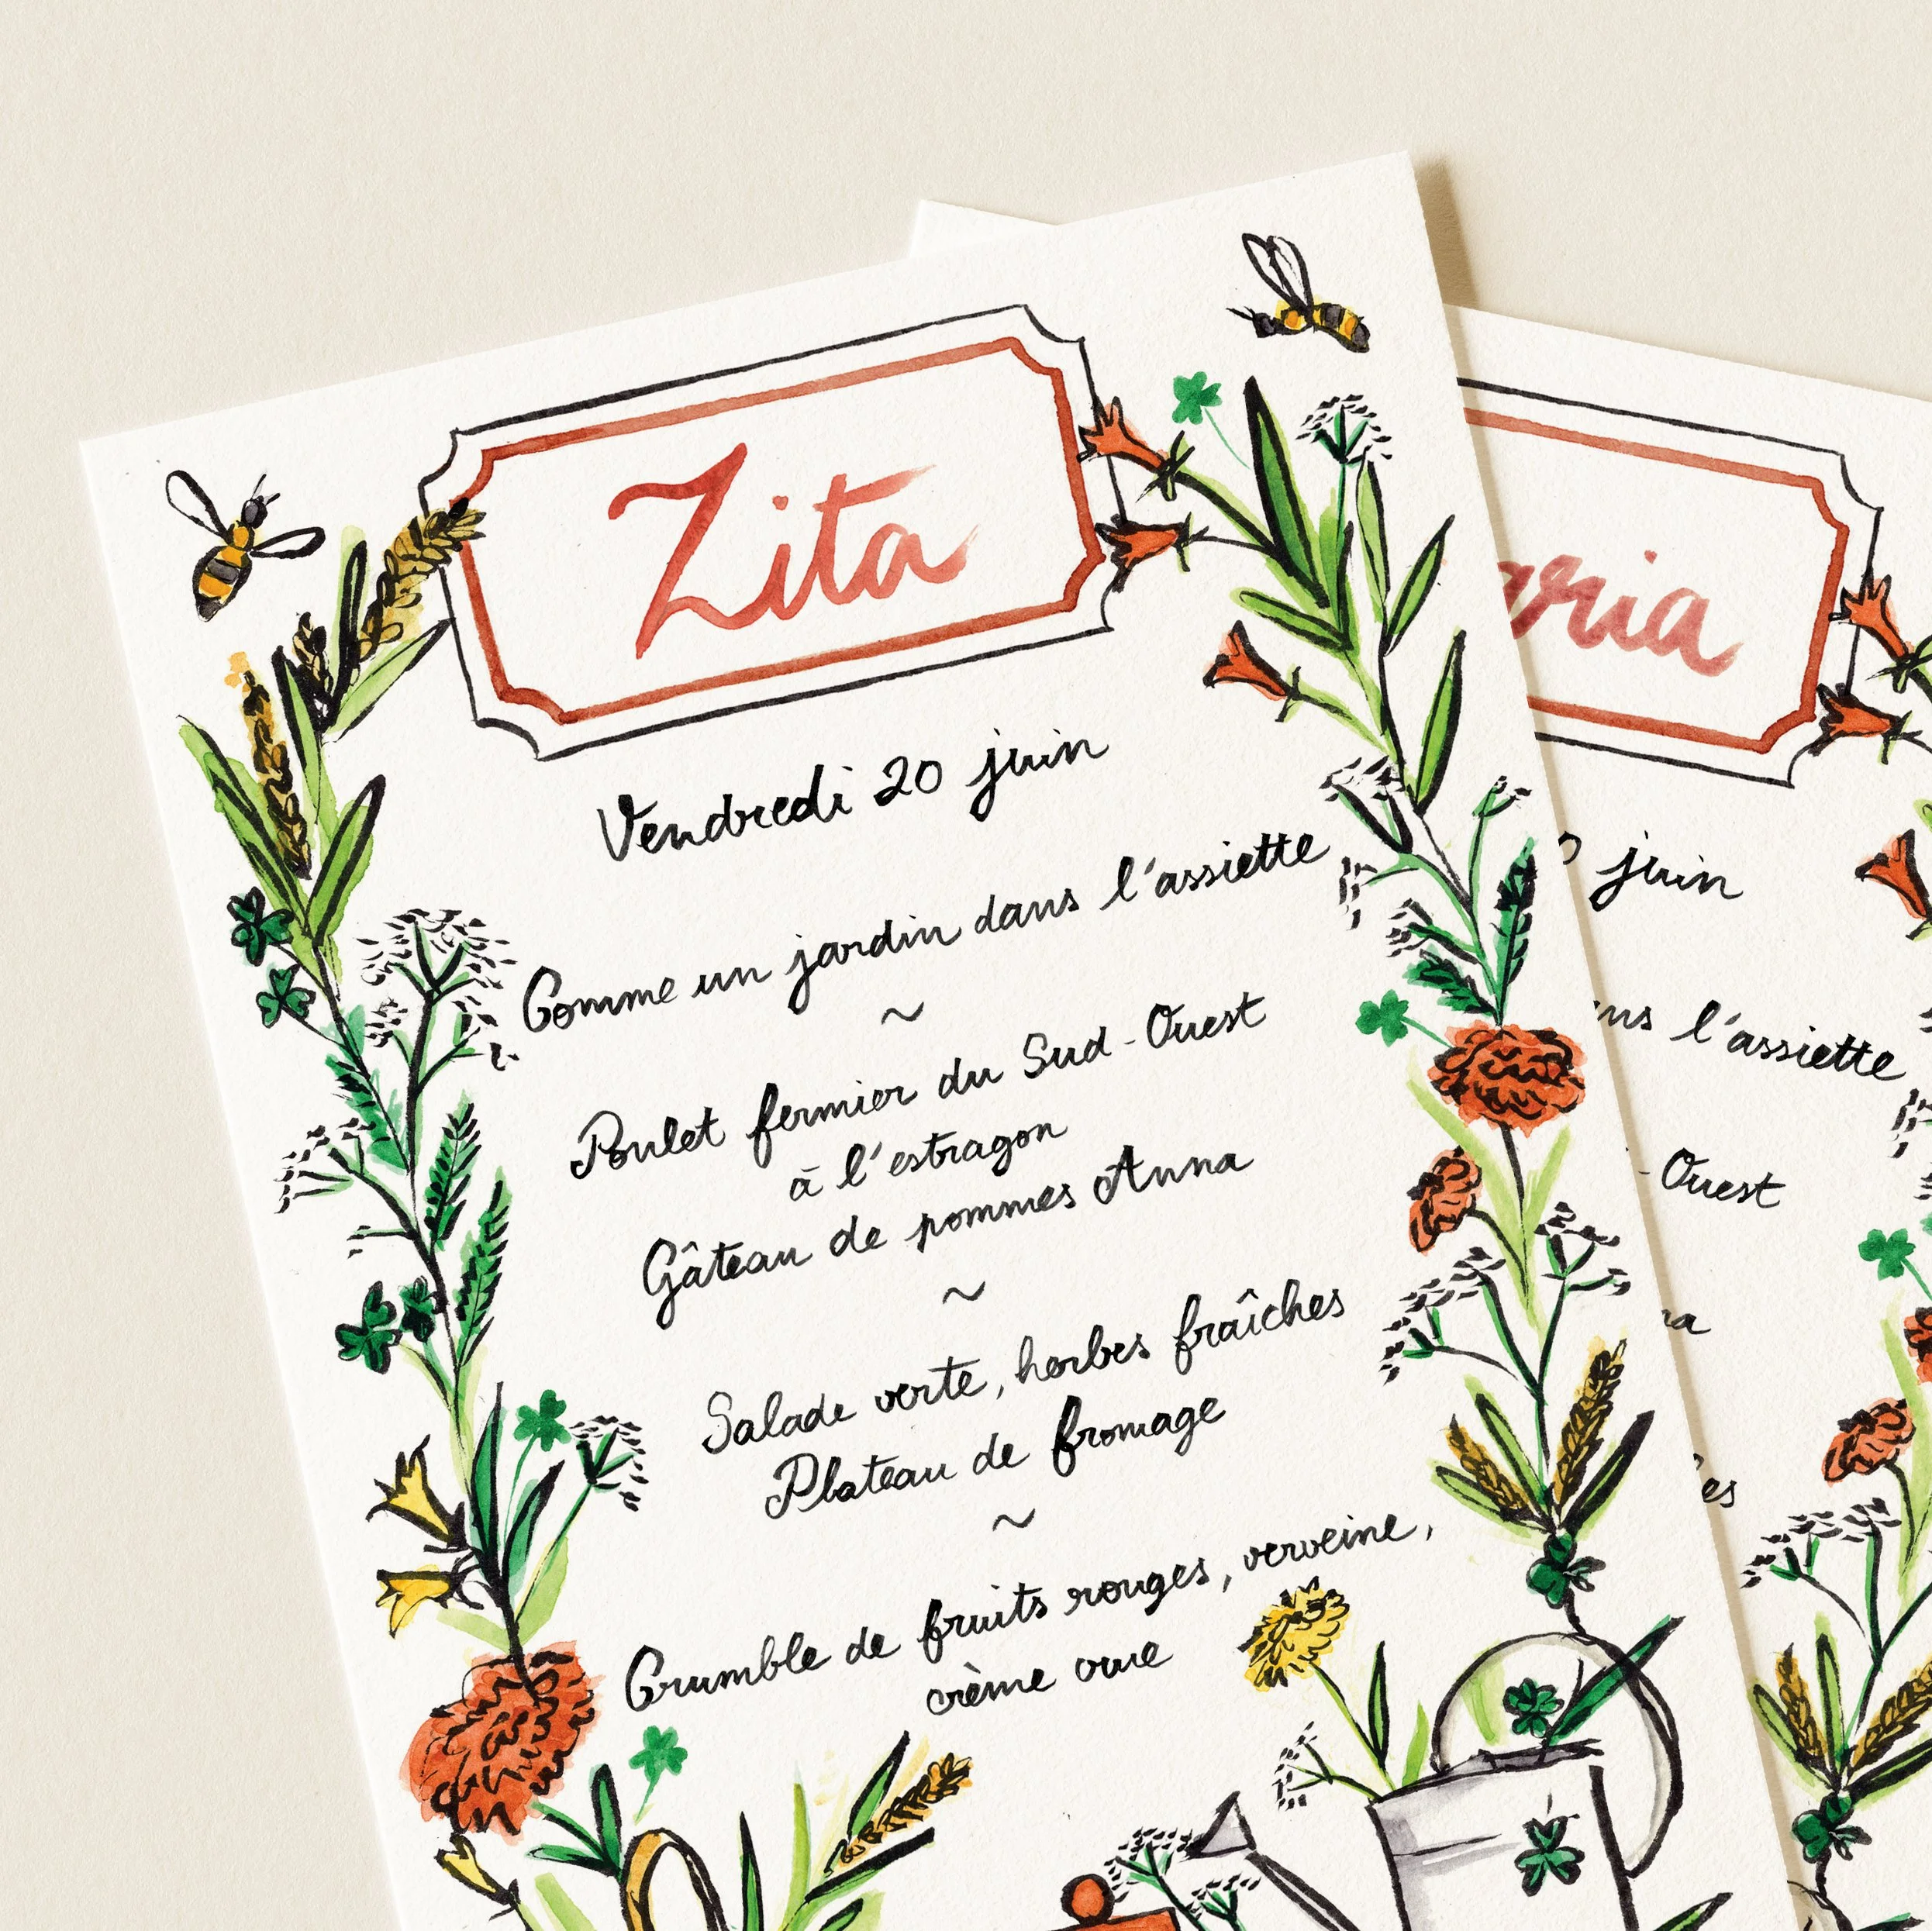 Zita
Vendredi 20 juin
Comme un jardin dans l'assiette
~
Poulet fermier du Sud-Ouest
à l'estragon
Gâteau de pommes Anna
~
Salade verte, herbes fraîches
Plateau de fromage
~
Crumble de fruits rouges, verveine,
crème crue
aria
0 juin
ns l'assiette
-Ouest
na
es